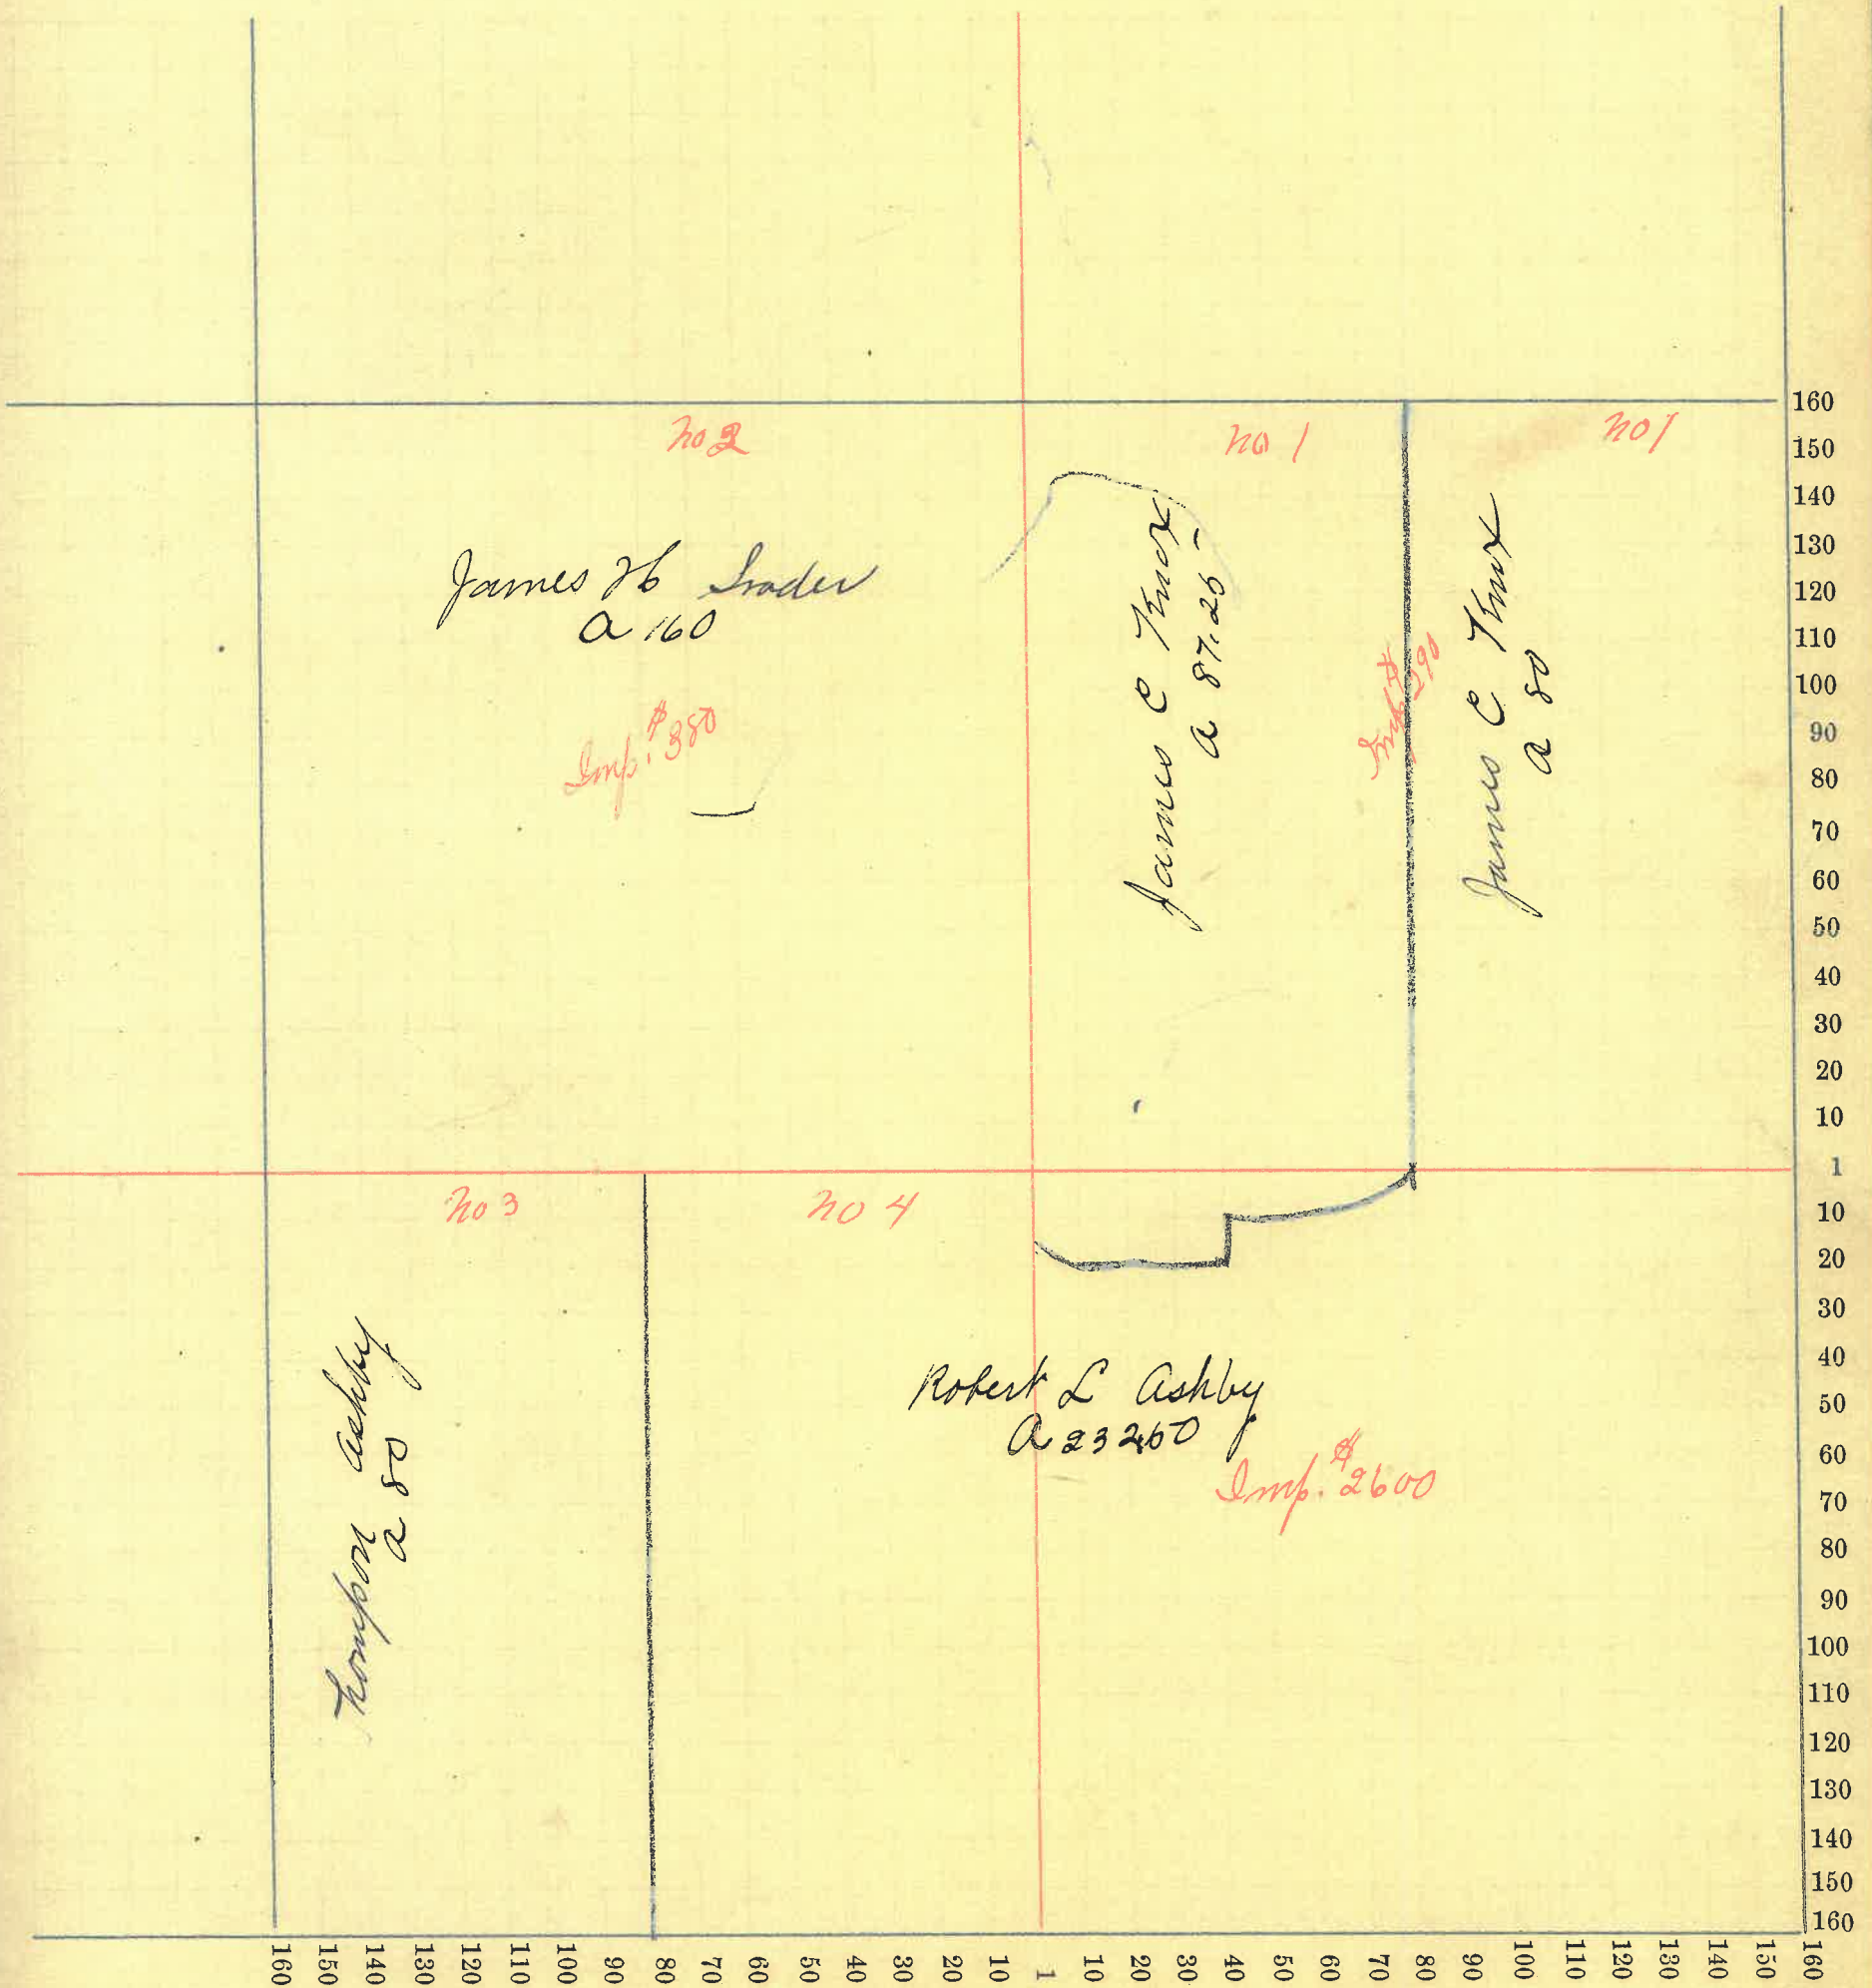 no 2
no 1
no 1
James H
a 160
Imp. $380
James C Knox
a 87.25
Imp $290
James C Knox
a 80
no 3
no 4
Thompson Ashby
a 80
Robert L Ashby
a 23260
Imp. $2600
160
150
140
130
120
110
100
90
80
70
60
50
40
30
20
10
1
10
20
30
40
50
60
70
80
90
100
110
120
130
140
150
160
160 150 140 130 120 110 100 90 80 70 60 50 40 30 20 10 1 10 20 30 40 50 60 70 80 90 100 110 120 130 140 150 160